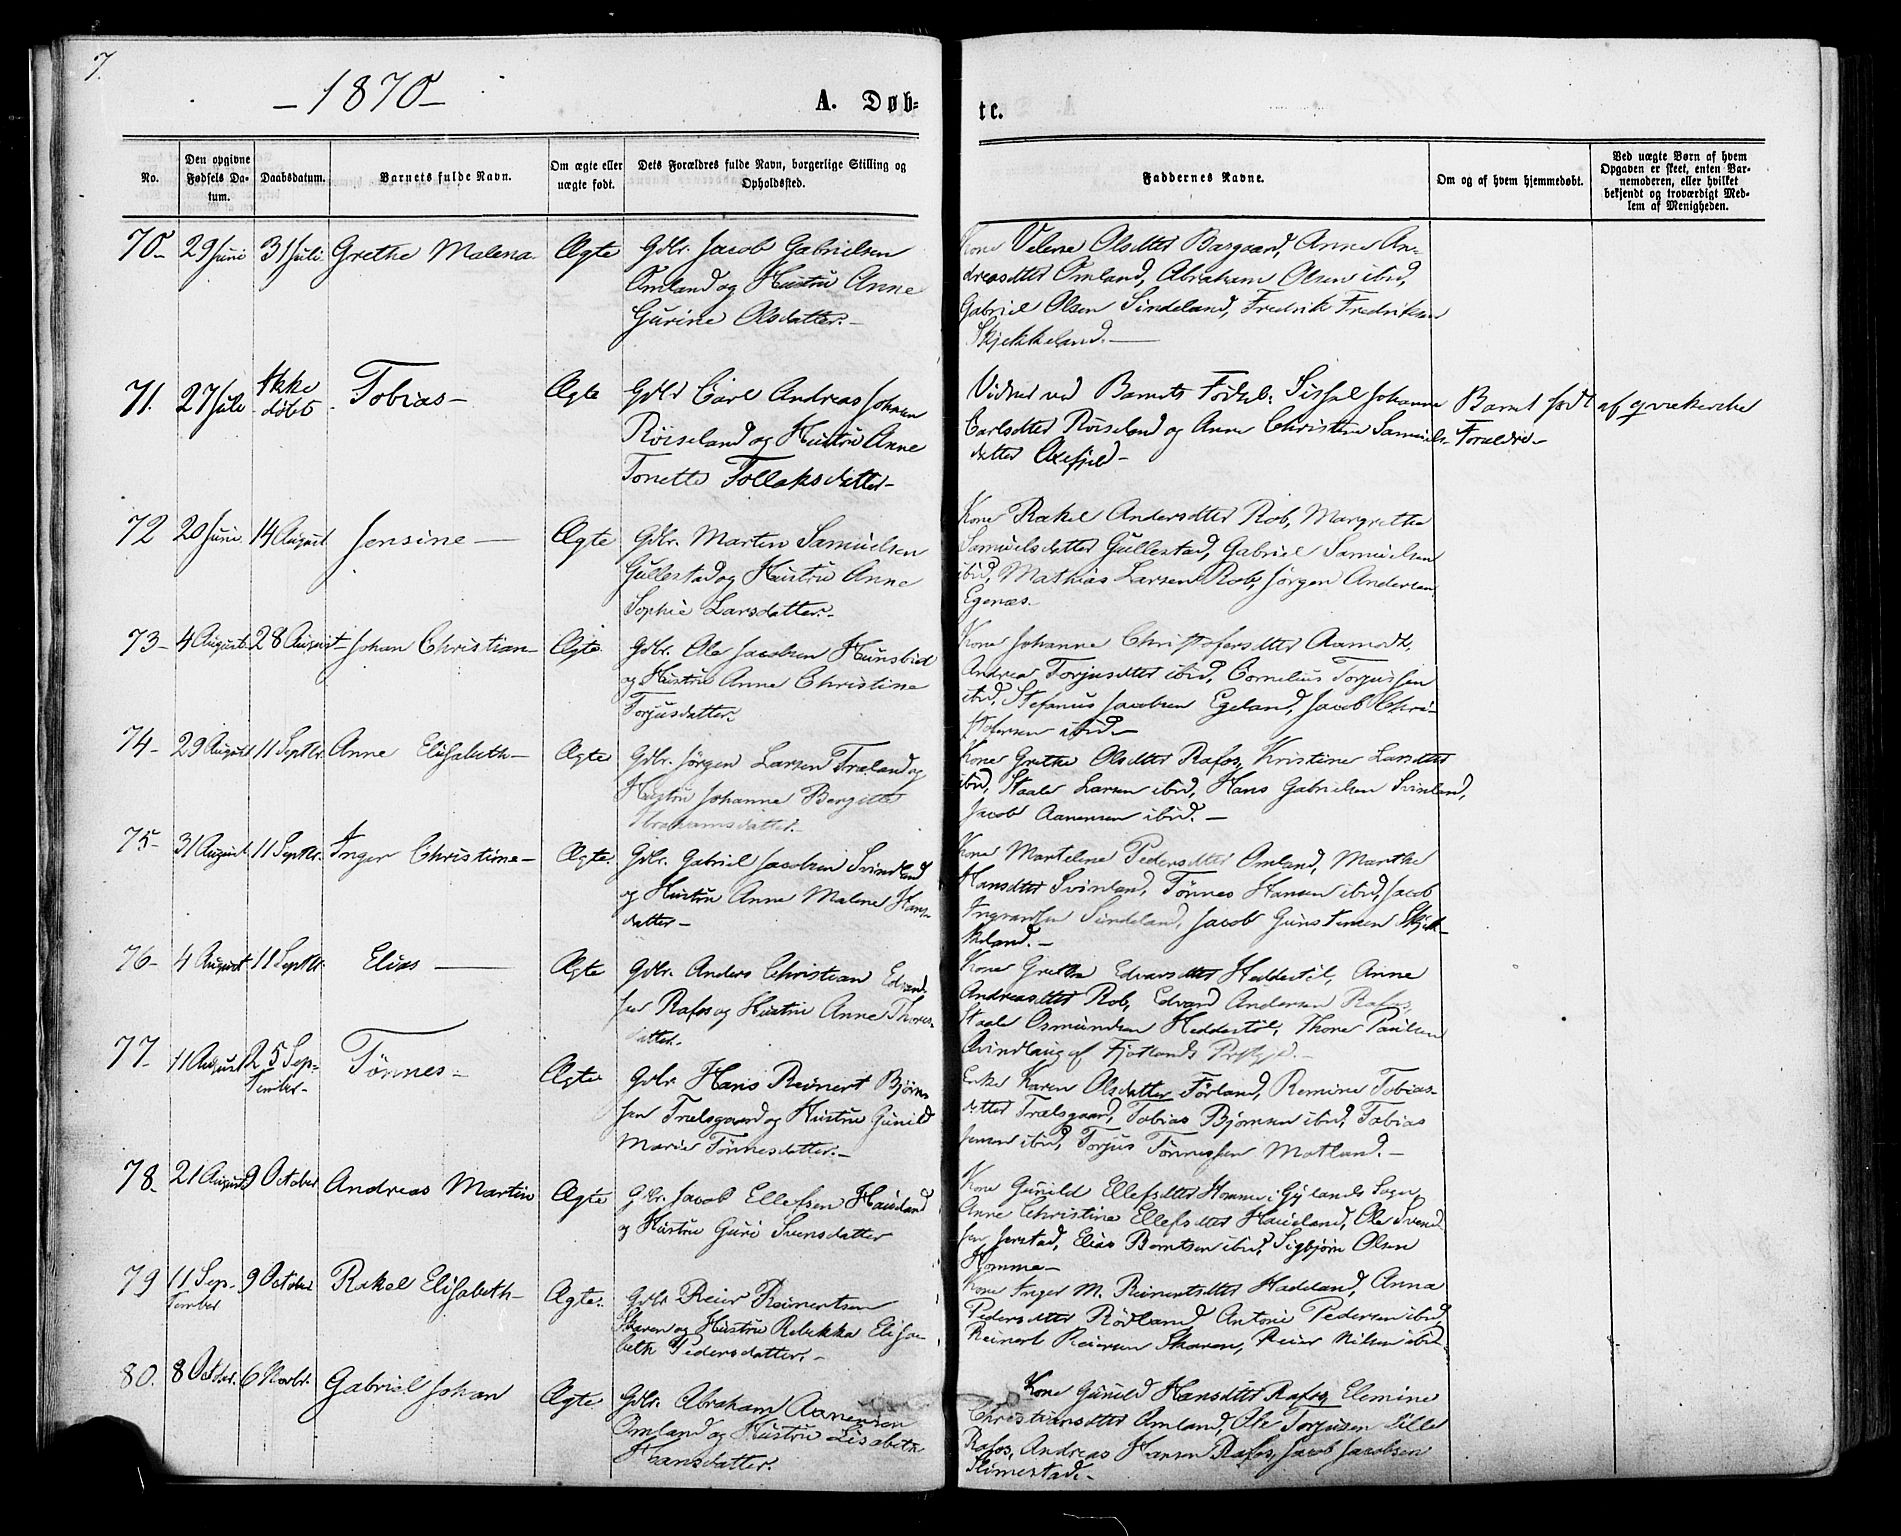 7.
- 1870 -
A. Døb-
te.
No.
Den opgivne Fødsels Da-tum.
Daabsdatum.
Barnets fulde Navn.
Om ægte eller uægte født.
Dets Forældres fulde Navn, borgerlige Stilling og Opholdssted.
Faddernes Navne.
Om og af hvem hjemmedøbt.
Ved uægte Børn af hvem
Opgaven er skeet, enten Bar-
nemoderen, eller hvilket
bekjendt og troværdigt Med-
lem af Menigheden.
70- 29 Juni 31 Juli Grethe Malena. Ægte Gdbr. Jacob Gabrielsen
Omland og Hustru Anne
Gurine Olsdatter.-
Kone Velene Olsdtter Bargaard, Anne An-
dreasdtter Omland, Abraham Olsen ibid,
Gabriel Olsen Sindeland, Fredrik Fredriksen
Skjekkeland.-
71. 27 Juli Ikke døbt. Tobias- Ægte Gdbr Carl Andreas Johnsen
Røiseland og Hustru Anne
Tonette Tollaksdatter-
Vidner ved Barnets Fødsel: Sissel Johanne
Carlsdtter Røiseland og Anne Christine Samuels-
datter Oxefjeld-
Barnet født af qvækerske
Forældre-
72 20 Juni 14 August Jensine- Ægte Gdbr. Martin Samuelsen
Gullestad og Hustru Anne
Sophie Larsdatter.-
Kone Rakel Andersdtter Rob, Margrethe
Samuelsdatter Gullestad, Gabriel Samuelsen
ibid, Mathias Larsen Rob, Jørgen Andersen
Egenæs.
73- 4 August 28 August Johan Christian- Ægte. Gdbr. Ole Jacobsen Hunsbid
og Hustru Anne Christine
Torjusdatter.
Kone Johanne Christofersdtter Aamodt,
Andrea Torjusdtter ibid, Cornelius Torjussen
ibid, Stefanus Jacobsen Egeland, Jacob Chri-
stofersen ibid-
74- 29 August 11 Septbr. Anne Elisabeth- Ægte Gdbr. Jørgen Larsen Træland og
Hustru Johanne Bergitte
Abrahamsdatter.
Kone Grethe Olsdtter Rafos, Kristine Larsdtter
ibid, Staale Larsen ibid, Hans Gabrielsen Svinland,
Jacob Aanensen ibid.-
75- 31 August 11 Septbr. Inger Christine- Ægte. Gdbr. Gabriel Jacobsen Svindland
og Hustru Anne Malene Hans-
datter-
Kone Martelene Pedersdtter Omland, Marthe
Hansdtter Svinland, Tønnes Hansen ibid, Jacob
Ingvardsen Sindeland, Jacob Gunstensen Skjek-
keland.-
76- 4 August 11 Septbr. Elias- Ægte Gdbr. Anders Christian Edvard-
sen Rafos og Hustru Anne Thores-
datter.
Kone Grethe Edvardsdtter Heddestøl, Anne
Andreasdtter Rob, Edvard Andersen Rafos,
Staale Osmundsen Heddestøl, Thore Paulsen
Qvindlaug af Fjotlands Prstgjd.-
77- 11 August 25 Sep-
tember- Tønnes- Ægte Gdbr Hans Reinert Bjørn-
sen Trælsgaard og Hustru Gunild
Marie Tønnesdatter.-
Enke Karen Olsdatter Førland, Remine Tobias-
datter Trælsgaard, Tobias Bjørnsen ibid, Tobias
Jensen ibid, Torjus Tønnessen Motland.-
78- 21 August 9 October Andreas Martin Ægte Gdbr. Jacob Ellefsen Haugland
og Hustru Guri Svensdatter
Kone Gunild Ellefsdtter Homme i Gylands Sogn,
Anne Christine Ellefsdtter Haugland, Ole Svend-
sen Jerstad, Elias Berntsen ibid, Sigbjørn Olsen
Homme-
79 11 Sep-
tember 9 October Rakel Elisabeth- Ægte. Gdbr Reier Reinertsen
Skaren og Hustru Rebekka Elisa-
beth Pedersdatter.-
Kone Inger M. Reinertsdtter Haddeland, Anna
Pedersdtter Rødland, Antoni Pedersen ibid,
Reinert Reiersen Skaren, Reier Nilsen ibid-
80. 8 October. 6 Novbr. Gabriel Johan Ægte Gdbr. Abraham Aanensen
Omland og Hustru Lisabeth
Hansdatter.
Kone Gunild Hansdtter Rafos, Elemine
Christiansdtter Omland, Ole Torjusen Lille
Rafos, Andreas Hansen Rafos, Jacob Jacobsen
Slimestad.-